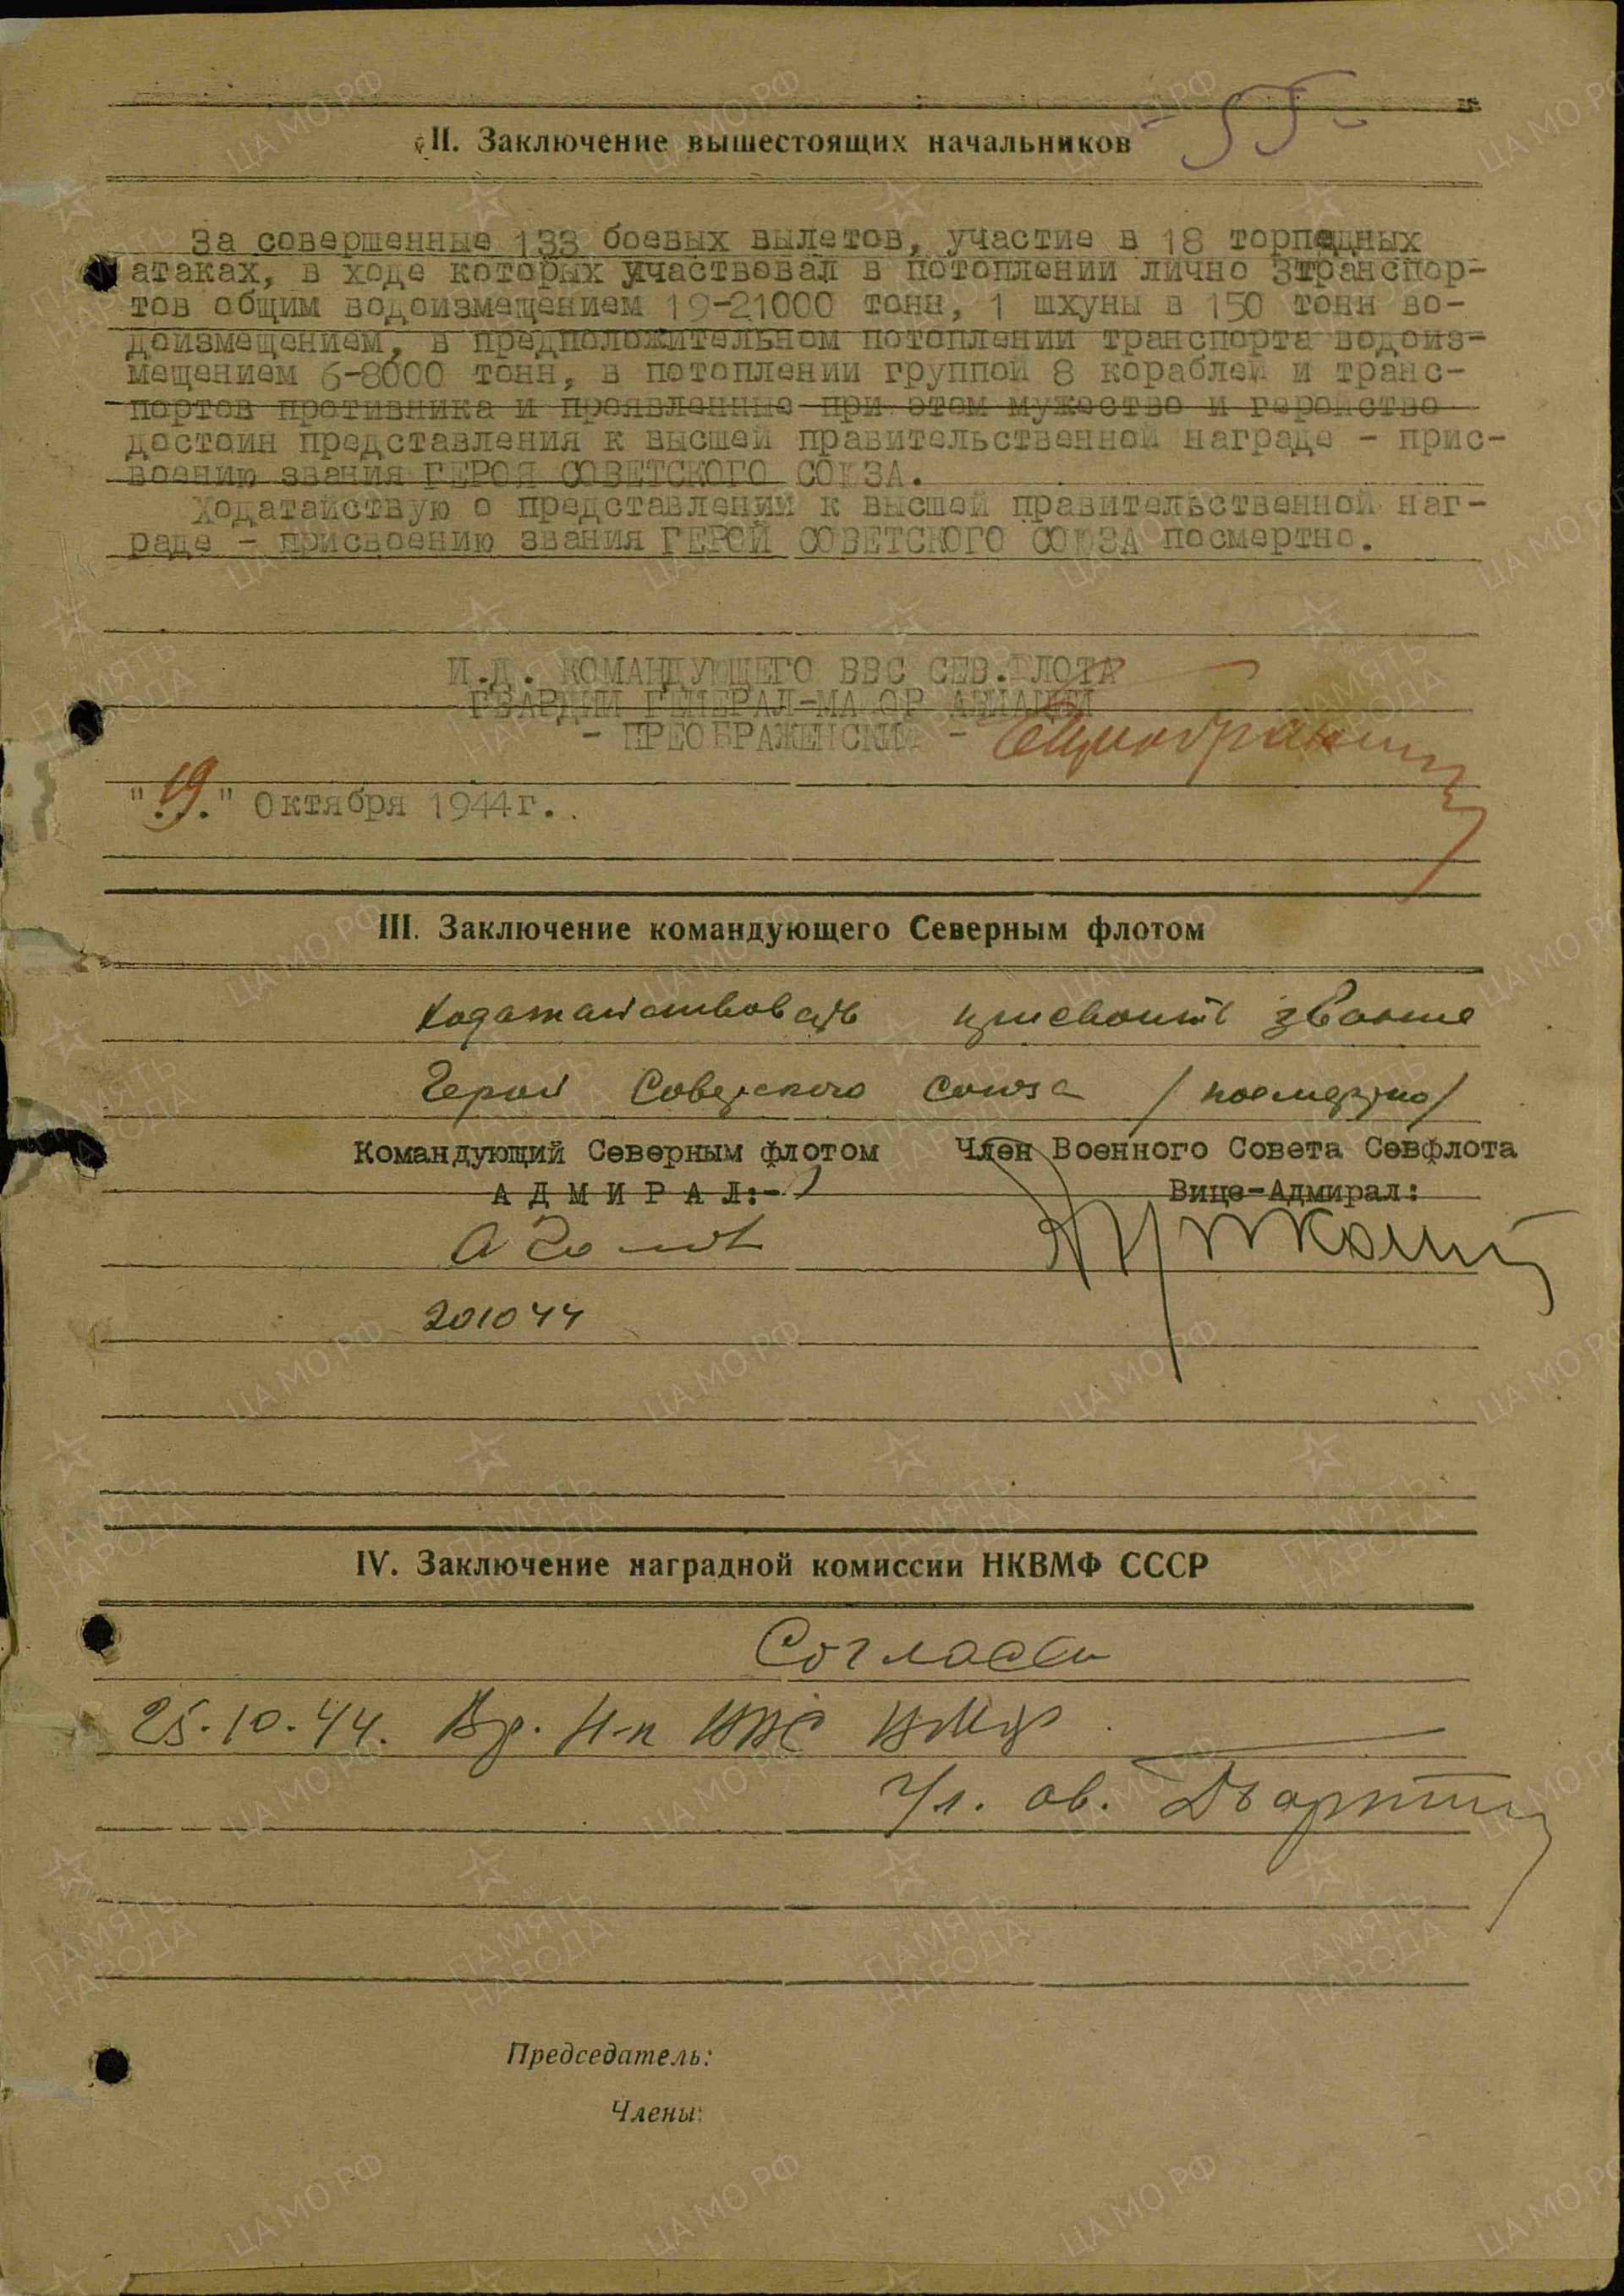 55
II. Заключение вышестоящих начальников
За совершенные 133 боевых вылетов, участие в 18 торпедных
атаках, в ходе которых участвовал в потоплении лично 3транспор-
тов общим водоизмещением 19-21000 тонн, 1 шхуны в 150 тонн во-
доизмещением, в предположительном потоплении транспорта водоиз-
мещением 6-8000 тонн, в потоплении группой 8 кораблей и транс-
портов противника и проявленные при этом мужество и геройство
достоин представления к высшей правительственной награде - прис-
воению звания ГЕРОЯ СОВЕТСКОГО СОЮЗА.
Ходатайствую о представлении к высшей правительственной наг-
раде - присвоению звания ГЕРОЙ СОВЕТСКОГО СОЮЗА посмертно.
И.Д. КОМАНДУЮЩЕГО ВВС СЕВ.ФЛОТА
ГВАРДИИ ГЕНЕРАЛ-МАЙОР АВИАЦИИ
- ПРЕОБРАЖЕНСКИЙ -
"19." Октября 1944г.
III. Заключение командующего Северным флотом
Ходатайствовать присвоить звание
Герой Советского Союза /посмертно/
Командующий Северным флотом Член Военного Совета Севфлота
АДМИРАЛ:- Вице-Адмирал:
А Головко
201044
IV. Заключение наградной комиссии НКВМФ СССР
Согласен
25.10.44. Вр. Н-к ВВС ВМФ
Председатель:
Члены:
ЦА МО РФ
ПАМЯТЬ НАРОДА